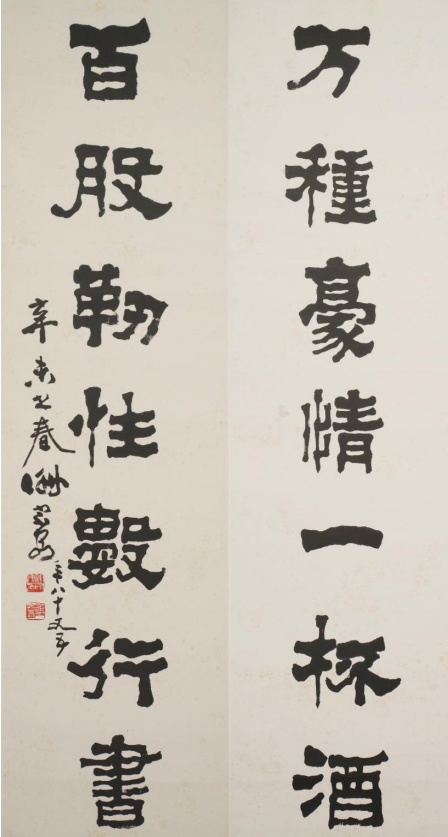 万種豪情一杯酒
百股靭性數行書
辛未之春謝宗安
年八十又五